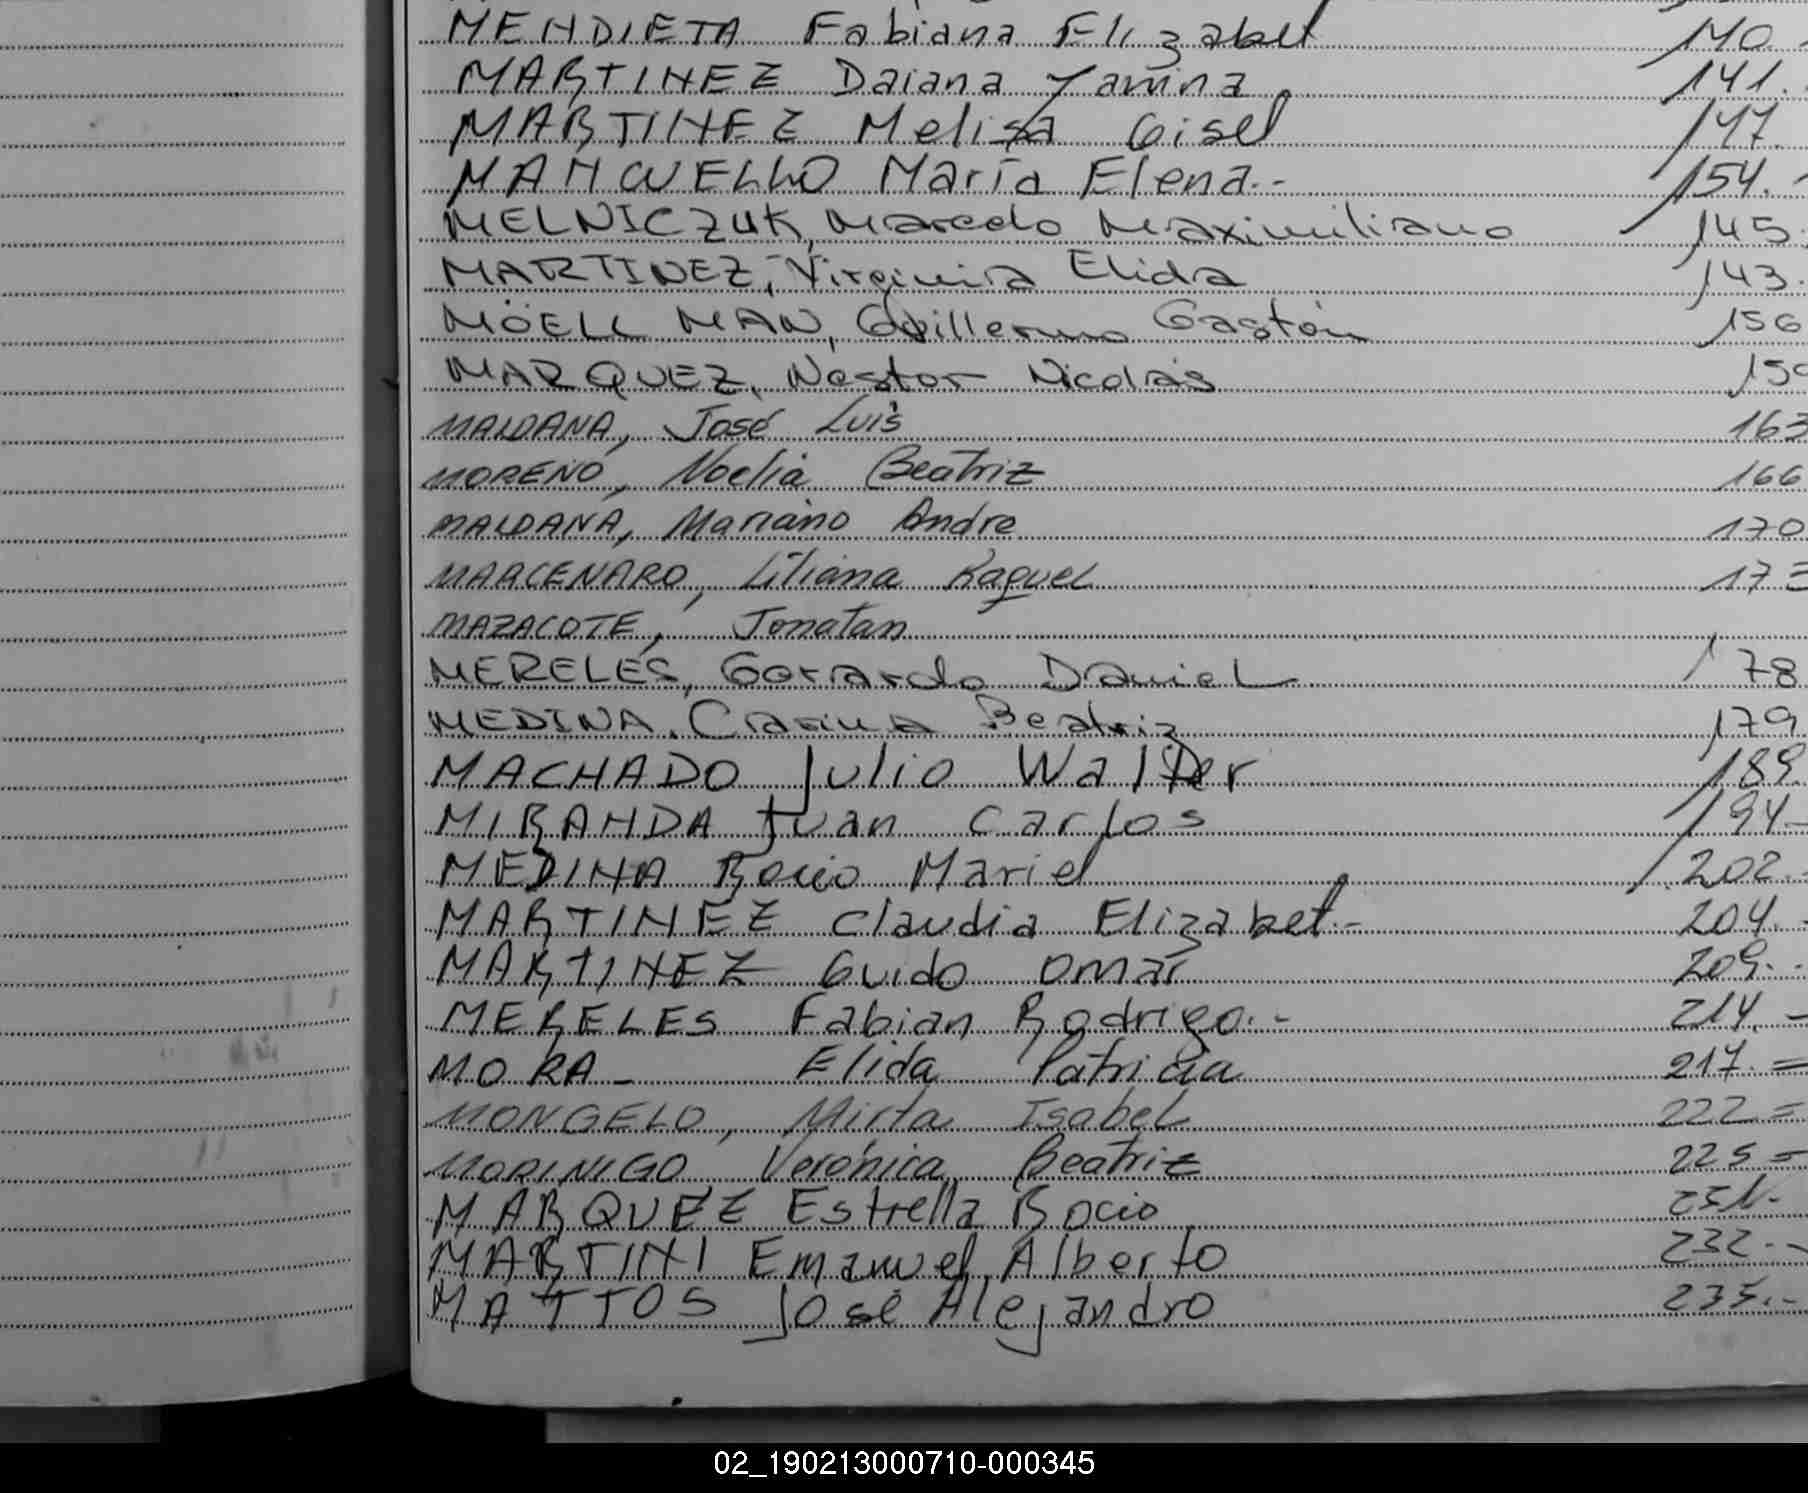 MENDIETA Fabiana Elizabet 140.-
MARTINEZ Daiana Yamina 141.-
MARTINEZ Melisa Gisel 147.
MANCUELLO María Elena.- 154.-
MELNICZUK, Marcelo Maximiliano 145.
MARTINEZ, Virginia Elida 143.
MÖELL MAN, Guillermo Gastón 156
MARQUEZ, Néstor Nicolás
MALDANA, José Luis 163
MORENO, Noelia Beatriz 166
MALDANA, Mariano Andre 170
MARCENARO, Liliana Raquel 173
MAZACOTE, Jonatan
MERELES, Gerardo Daniel 178
MEDINA, Carina Beatriz 179
MACHADO Julio Walter 189.
MIRANDA Juan Carlos 194-
MEDINA Rocio Mariel 202.-
MARTINEZ Claudia Elizabet.- 204.-
MARTINEZ Guido Omar 209.-
MERELES Fabian Rodrigo.- 214.-
MORA - Elida Patricia 217.=
MONGELO, Mirta Isabel 222=
MORINIGO Verónica Beatriz 225=
MARQUEZ Estrella Rocio 231.-
MARTINI Emanuel Alberto 232.-
MATTOS José Alejandro 235.-
02_190213000710-000345